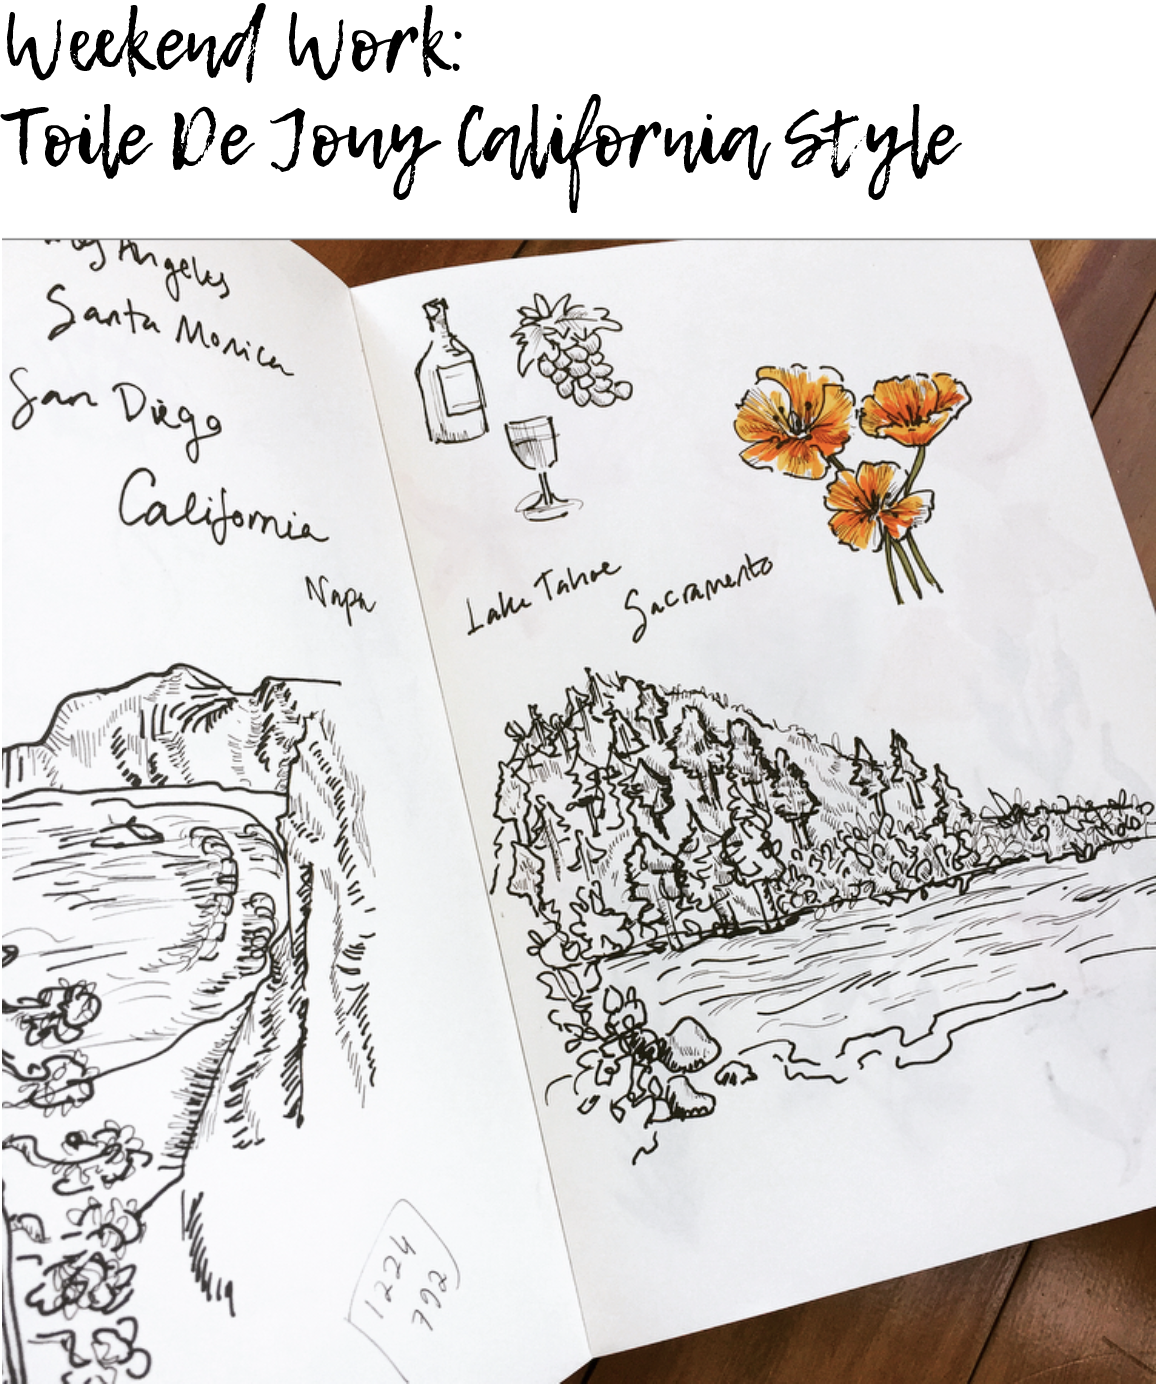 Weekend Work:
Toile De Jouy California Style
Los Angeles
Santa Monica
San Diego
California
Napa
Lake Tahoe
Sacramento
1224
792